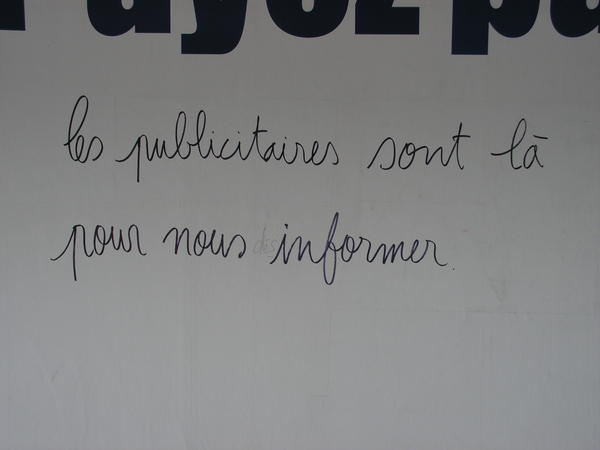 Payez pa
les publicitaires sont là
pour nous des informer.